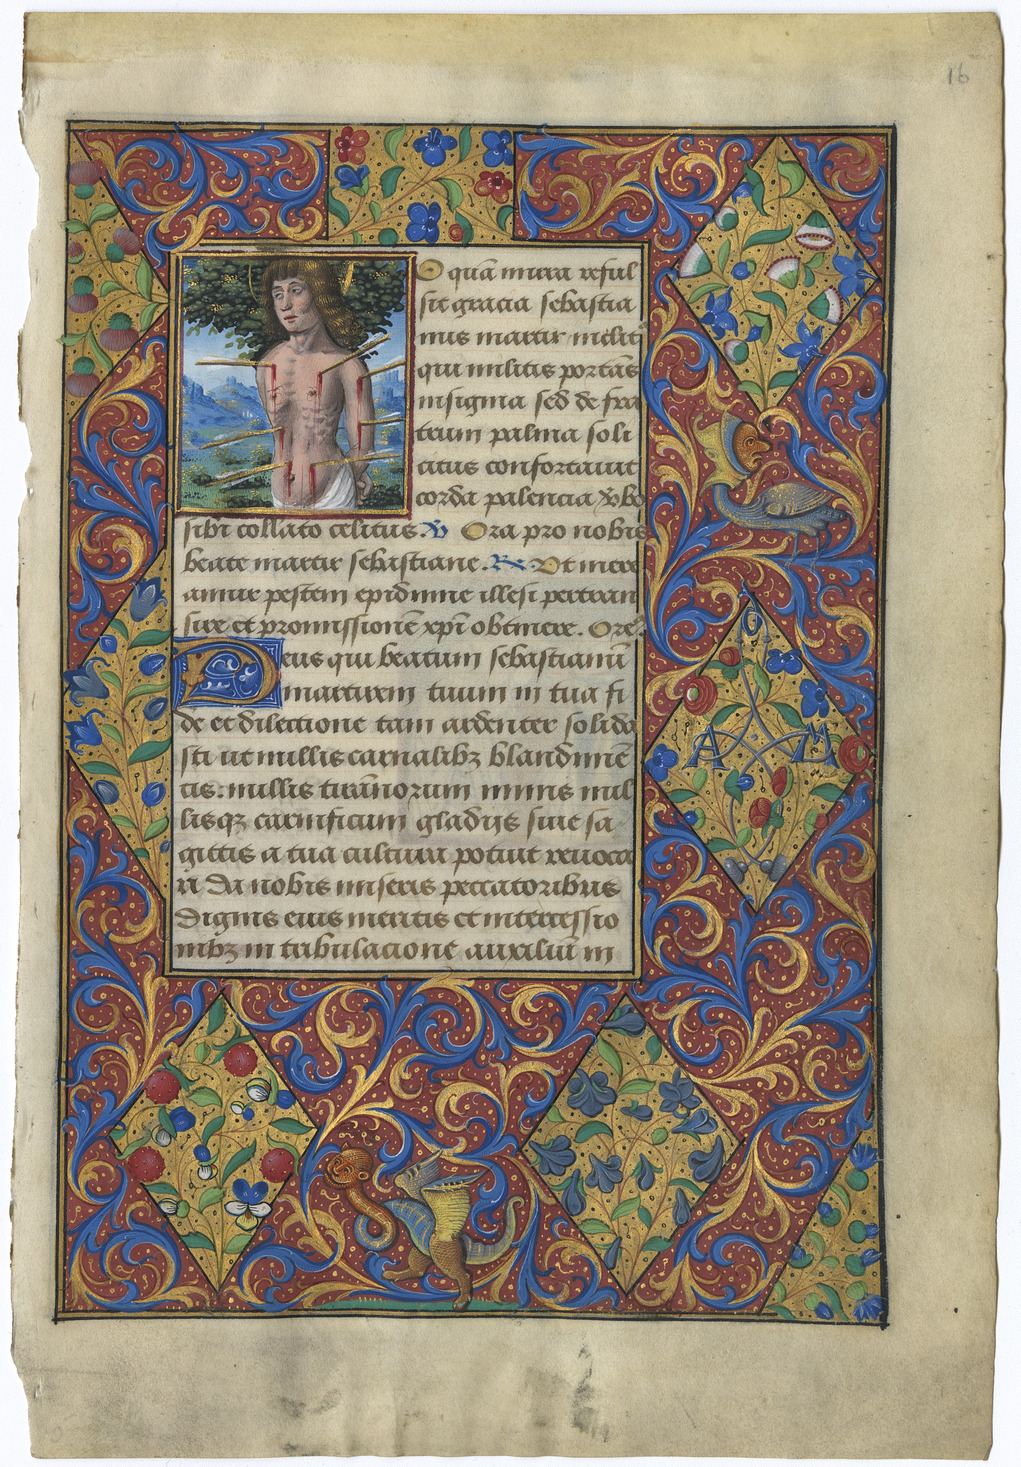 16
O quā mira reful
sit gracia sebastia
nus martir inclitꝰ
qui militis portās
insignia sed de fra
trum palma soli
citus confortauit
corda palencia v̄bo
sibi collato celitus. ℣ Ora pro nobis
beate martir sebastiane. ℟ Vt mere
amur pestem epidimie illesi pertran
sire et promissionē xp̄i obtinere. Ore᷒
Deus qui beatum sebastianū
martirem tuum in tua fi
de et dilectione tam ardenter solida
sti ut nullis carnalibꝫ blandimē
tis: nullis tirānorum minis nul
lisqꝫ carnificum gladijs siue sa
gittis a tua cultura potuit reuoca
ri Da nobis miseris peccatoribus
dignis eius meritis et intercessio
nibꝫ in tribulacione auxiliū in
A M